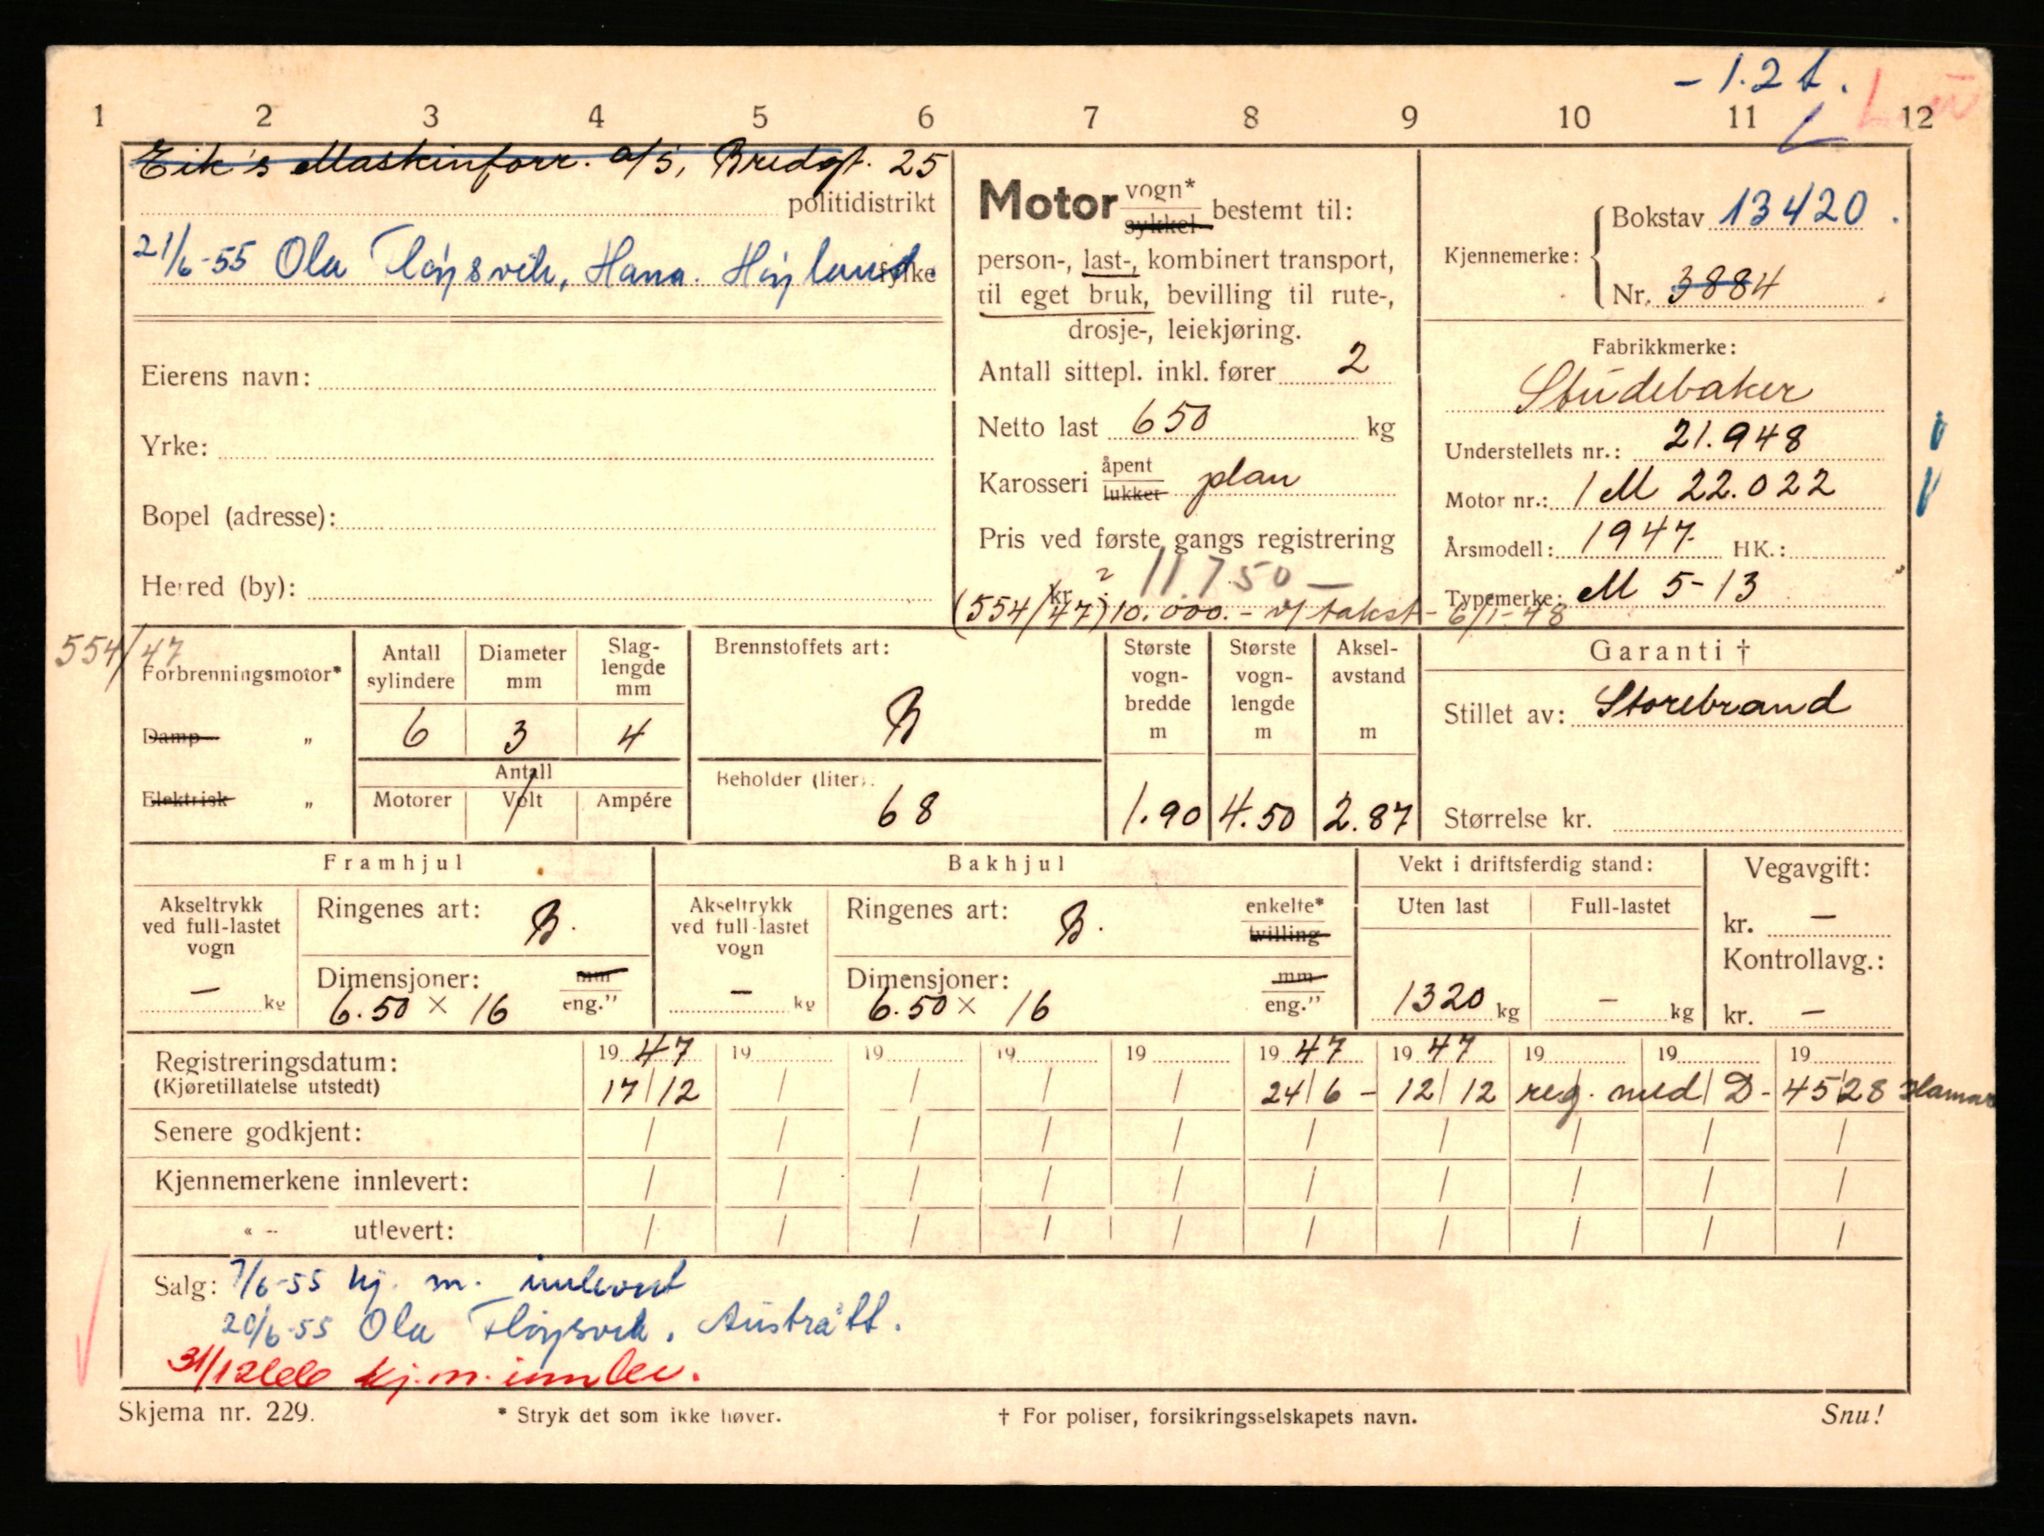 - 1.2 t.
1 2 3 4 5 6 7 8 9 10 11 12
Eik's Maskinforr. a/s, Bredgt. 25
politidistrikt
21/6-55 Ola Fløysvik, Hana. Høyland.
fylke
Eierens navn:
Yrke:
Bopel (adresse):
Herred (by):
Motor vogn* sykkel bestemt til:
person-, last-, kombinert transport,
til eget bruk, bevilling til rute-,
drosje-, leiekjøring.
Antall sittepl. inkl. fører 2
Netto last 650 kg
Karosseri åpent lukket plan
Pris ved første gangs registrering
kr. 11.750 -
(554/47) 10.000.- v/ takst - 6/1-48
Kjennemerke: Bokstav 13420.
Nr. 3884
Fabrikkmerke:
Studebaker
Understellets nr.: 21.948
Motor nr.: 1 M 22.022
Årsmodell: 1947. HK.:
Typemerke: M 5-13
554/47
Forbrenningsmotor*
Damp „
Elektrisk „
Antall sylindere
Diameter mm
Slag-lengde mm
6 3 4
Antall
Motorer Volt Ampére
Brennstoffets art:
B
Beholder (liter):
68
Største vogn-bredde m
Største vogn-lengde m
Aksel-avstand m
1.90 4.50 2.87
Garanti †
Stillet av: Storebrand
Størrelse kr.
Framhjul
Akseltrykk ved full-lastet vogn
- kg
Ringenes art: B.
Dimensjoner: mm eng."
6.50 × 16
Bakhjul
Akseltrykk ved full-lastet vogn
- kg
Ringenes art: B. enkelte* tvilling
Dimensjoner: mm eng."
6.50 × 16
Vekt i driftsferdig stand:
Uten last Full-lastet
1320 kg - kg
Vegavgift:
kr. -
Kontrollavg.:
kr. -
Registreringsdatum: 19 47 19 19 19 19 19 47 19 47 19 19 19
(Kjøretillatelse utstedt) 17/12 / / / / 24/6 - 12/12 reg. med D-4528 Hamar
Senere godkjent: / / / / / / / / / /
Kjennemerkene innlevert: / / / / / / / / / /
« -- utlevert: / / / / / / / / / /
Salg: 7/6-55 kj. m. innlevert
20/6-55 Ola Fløysvik, Austrått.
31/12 66 kj.m. innlev.
Skjema nr. 229.
* Stryk det som ikke høver.
† For poliser, forsikringsselskapets navn.
Snu!